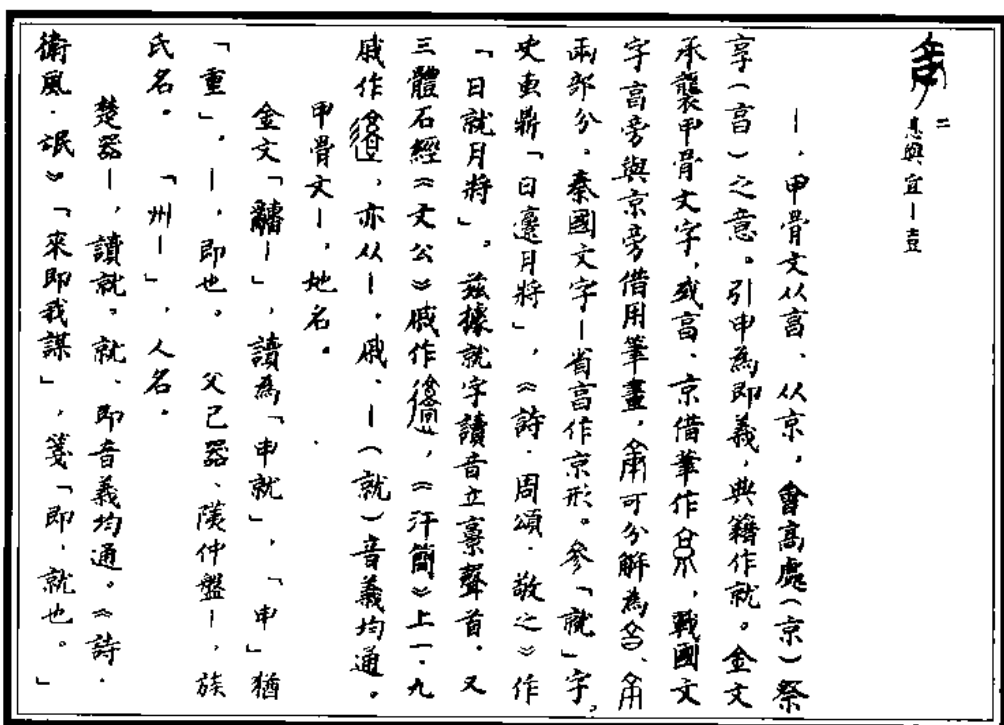 二
息與宜一壴
一，甲骨文从亯、从京，會高處（京）祭
享（亯）之意。引申為即義，典籍作就。金文
承襲甲骨文字，或亯、京借筆作，戰國文
字亯旁與京旁借用筆畫，可分解為、
兩部分。秦國文字一省亯作京形。參「就」字。
史惠鼎「日 月將」，《詩·周頌·敬之》作
「日就月將」。茲據就字讀音立 聲首。又
三體石經《文公》戚作，《汗簡》上一·九
戚作，亦从一，戚、一（就）音義均通。
甲骨文一，地名。
金文「 一」，讀為「申就」，「申」猶
「重」。一，即也。父己器、 仲盤一，族
氏名。「州一」，人名。
楚器一，讀就。就、即音義均通。《詩·
衛風·氓》「來即我謀」，箋「即，就也。」